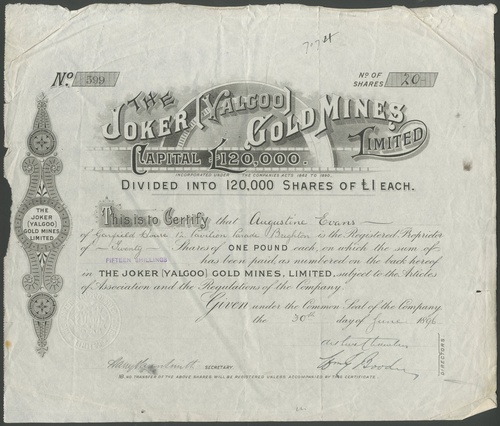 7.74
No. 599
No. OF SHARES 20
THE JOKER (YALGOO) GOLD MINES, LIMITED
CAPITAL £120,000.
INCORPORATED UNDER THE COMPANIES ACTS 1862 TO 1890.
DIVIDED INTO 120,000 SHARES OF £1 EACH.
This is to Certify that Augustine Evans
of Brighton is the Registered Proprietor
of Twenty Shares of ONE POUND each, on which the sum of
FIFTEEN SHILLINGS has been paid, as numbered on the back hereof
in THE JOKER (YALGOO) GOLD MINES, LIMITED, subject to the Articles
of Association and the Regulations of the Company.
Given under the Common Seal of the Company
the 30th day of June 1896
THE JOKER (YALGOO) GOLD MINES, LIMITED.
SECRETARY.
DIRECTORS
NO TRANSFER OF THE ABOVE SHARES WILL BE REGISTERED UNLESS ACCOMPANIED BY THIS CERTIFICATE.